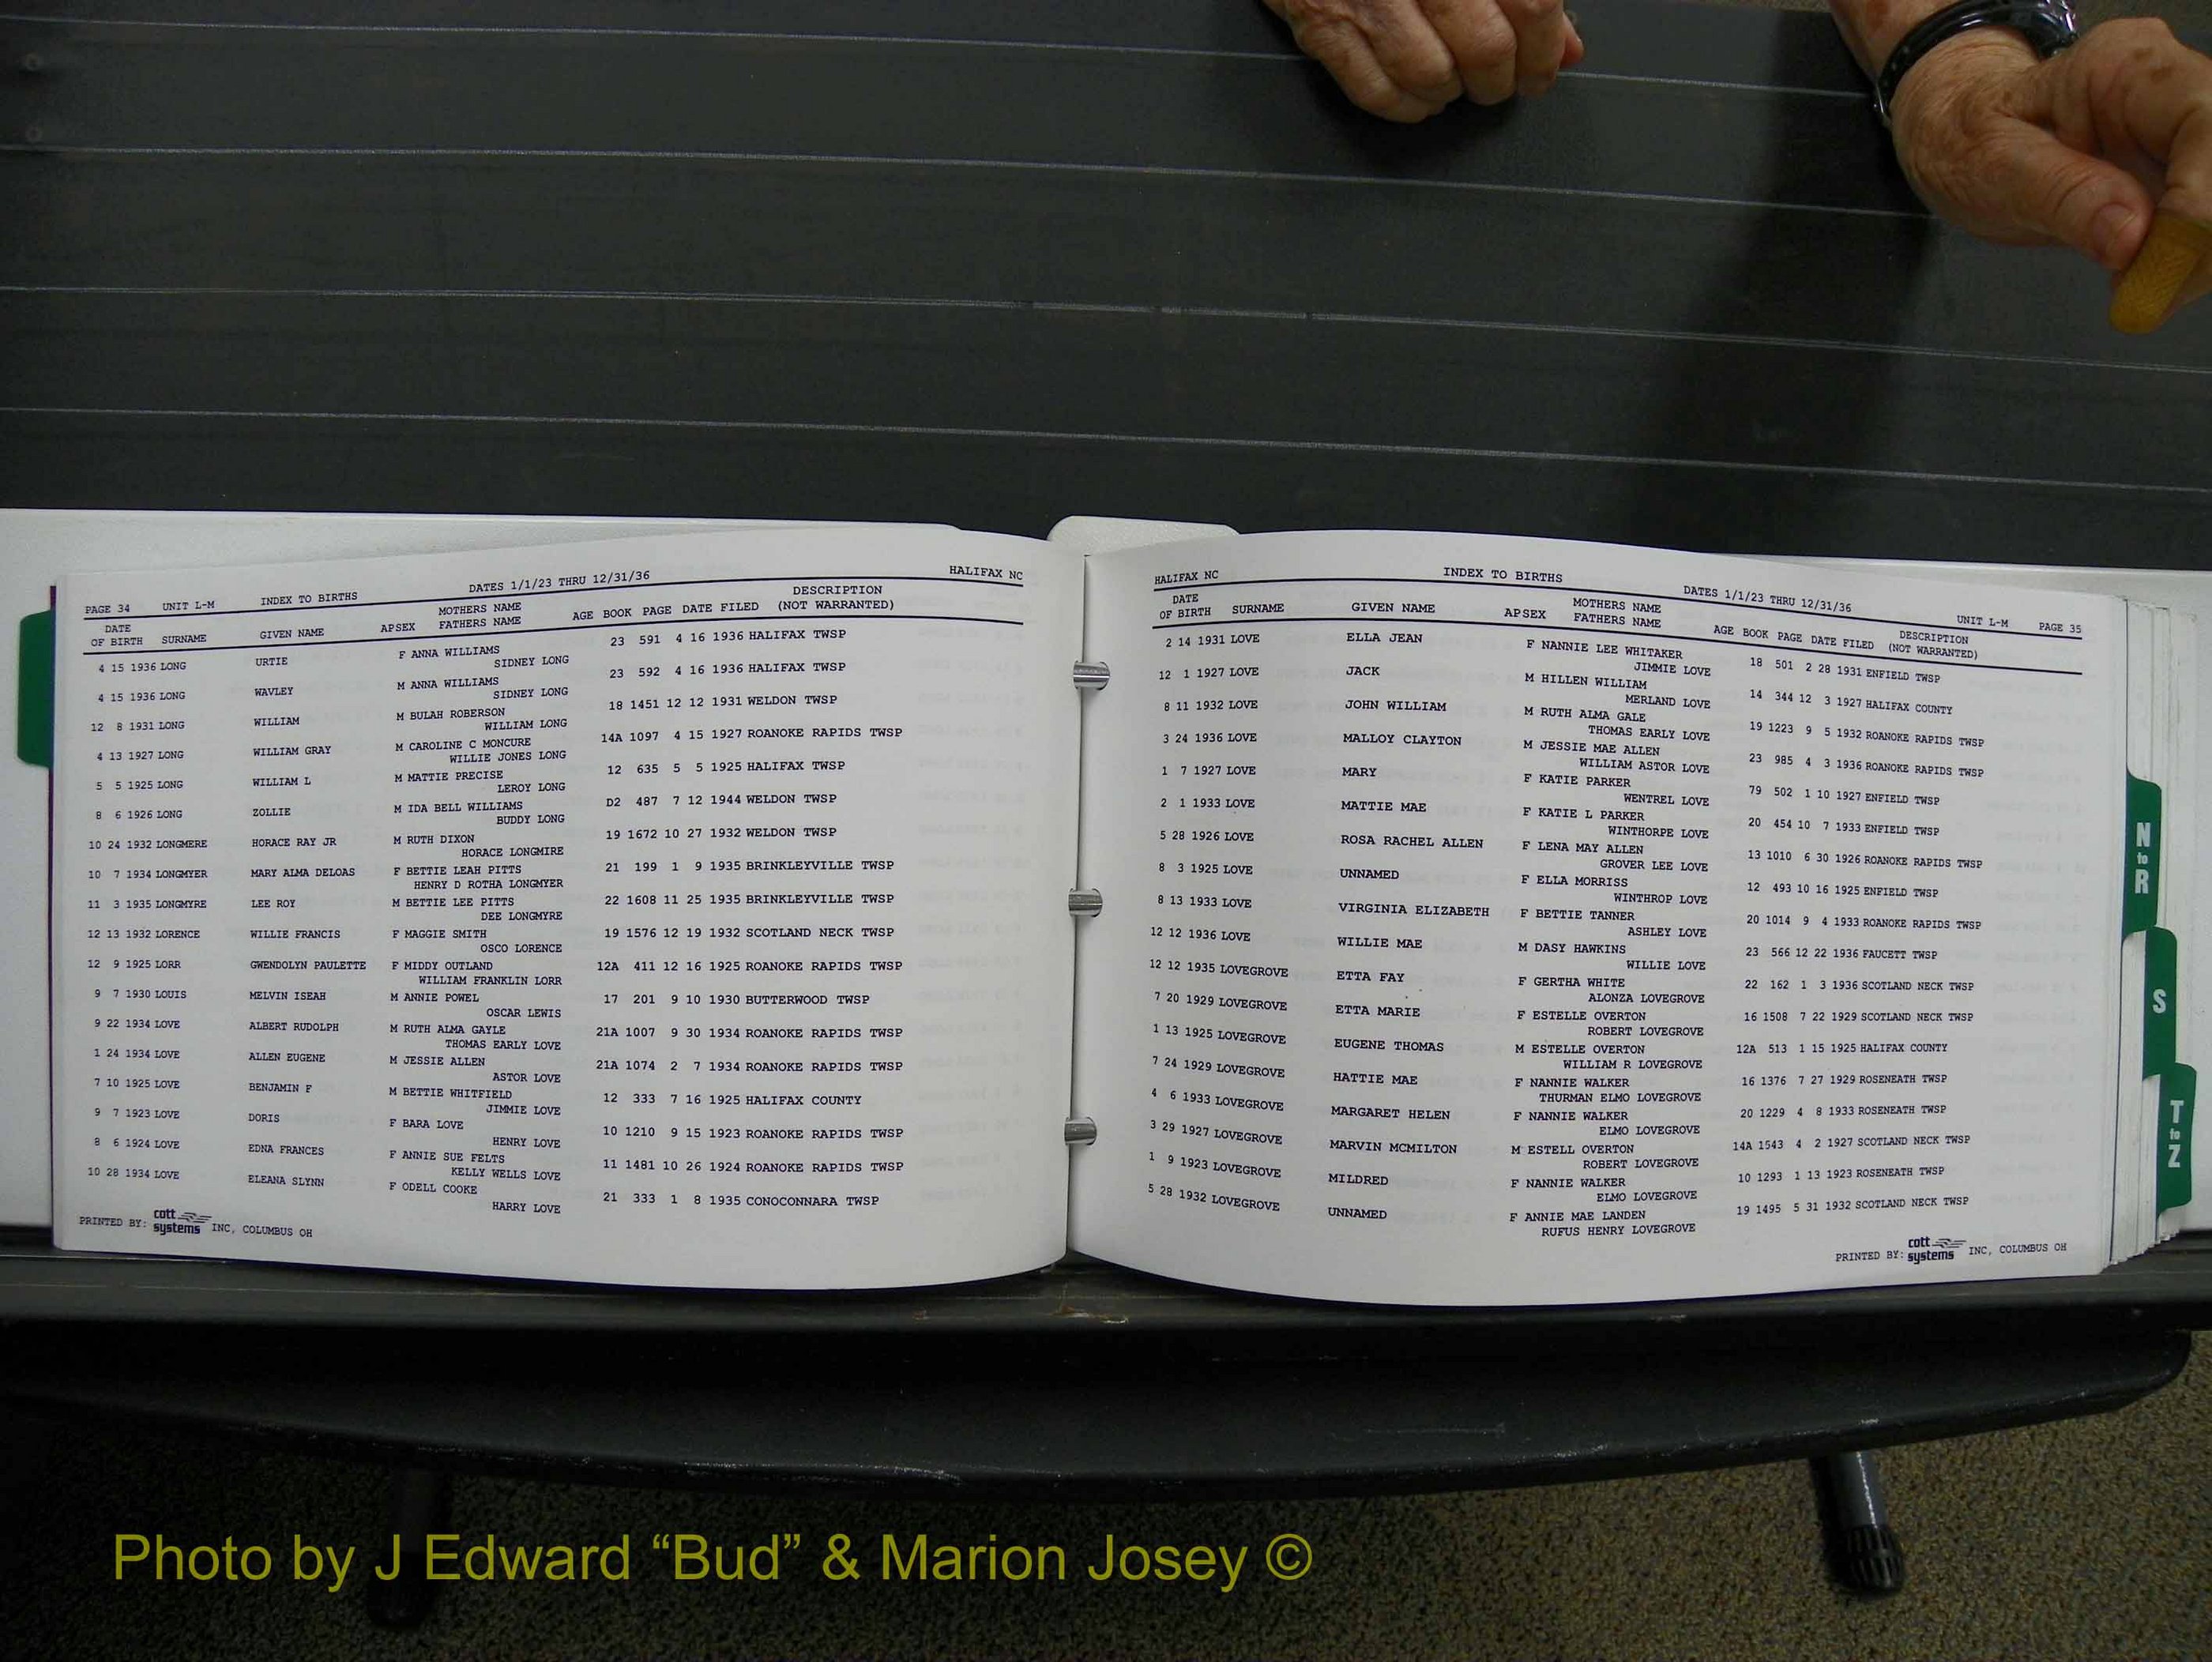 PAGE 34 UNIT L-M INDEX TO BIRTHS DATES 1/1/23 THRU 12/31/36 HALIFAX NC
DATE MOTHERS NAME DESCRIPTION
OF BIRTH SURNAME GIVEN NAME APSEX FATHERS NAME AGE BOOK PAGE DATE FILED (NOT WARRANTED)
4 15 1936 LONG URTIE F ANNA WILLIAMS 23 591 4 16 1936 HALIFAX TWSP
SIDNEY LONG
4 15 1936 LONG WAVLEY M ANNA WILLIAMS 23 592 4 16 1936 HALIFAX TWSP
SIDNEY LONG
12 8 1931 LONG WILLIAM M BULAH ROBERSON 18 1451 12 12 1931 WELDON TWSP
WILLIAM LONG
4 13 1927 LONG WILLIAM GRAY M CAROLINE C MONCURE 14A 1097 4 15 1927 ROANOKE RAPIDS TWSP
WILLIE JONES LONG
5 5 1925 LONG WILLIAM L M MATTIE PRECISE 12 635 5 5 1925 HALIFAX TWSP
LEROY LONG
8 6 1926 LONG ZOLLIE M IDA BELL WILLIAMS D2 487 7 12 1944 WELDON TWSP
BUDDY LONG
10 24 1932 LONGMERE HORACE RAY JR M RUTH DIXON 19 1672 10 27 1932 WELDON TWSP
HORACE LONGMIRE
10 7 1934 LONGMYER MARY ALMA DELOAS F BETTIE LEAH PITTS 21 199 1 9 1935 BRINKLEYVILLE TWSP
HENRY D ROTHA LONGMYER
11 3 1935 LONGMYRE LEE ROY M BETTIE LEE PITTS 22 1608 11 25 1935 BRINKLEYVILLE TWSP
DEE LONGMYRE
12 13 1932 LORENCE WILLIE FRANCIS F MAGGIE SMITH 19 1576 12 19 1932 SCOTLAND NECK TWSP
OSCO LORENCE
12 9 1925 LORR GWENDOLYN PAULETTE F MIDDY OUTLAND 12A 411 12 16 1925 ROANOKE RAPIDS TWSP
WILLIAM FRANKLIN LORR
9 7 1930 LOUIS MELVIN ISEAH M ANNIE POWEL 17 201 9 10 1930 BUTTERWOOD TWSP
OSCAR LEWIS
9 22 1934 LOVE ALBERT RUDOLPH M RUTH ALMA GAYLE 21A 1007 9 30 1934 ROANOKE RAPIDS TWSP
THOMAS EARLY LOVE
1 24 1934 LOVE ALLEN EUGENE M JESSIE ALLEN 21A 1074 2 7 1934 ROANOKE RAPIDS TWSP
ASTOR LOVE
7 10 1925 LOVE BENJAMIN F M BETTIE WHITFIELD 12 333 7 16 1925 HALIFAX COUNTY
JIMMIE LOVE
9 7 1923 LOVE DORIS F BARA LOVE 10 1210 9 15 1923 ROANOKE RAPIDS TWSP
HENRY LOVE
8 6 1924 LOVE EDNA FRANCES F ANNIE SUE FELTS 11 1481 10 26 1924 ROANOKE RAPIDS TWSP
KELLY WELLS LOVE
10 28 1934 LOVE ELEANA SLYNN F ODELL COOKE 21 333 1 8 1935 CONOCONNARA TWSP
HARRY LOVE
PRINTED BY: cott systems INC, COLUMBUS OH
HALIFAX NC INDEX TO BIRTHS DATES 1/1/23 THRU 12/31/36 UNIT L-M PAGE 35
DATE MOTHERS NAME DESCRIPTION
OF BIRTH SURNAME GIVEN NAME APSEX FATHERS NAME AGE BOOK PAGE DATE FILED (NOT WARRANTED)
2 14 1931 LOVE ELLA JEAN F NANNIE LEE WHITAKER 18 501 2 28 1931 ENFIELD TWSP
JIMMIE LOVE
12 1 1927 LOVE JACK M HILLEN WILLIAM 14 344 12 3 1927 HALIFAX COUNTY
MERLAND LOVE
8 11 1932 LOVE JOHN WILLIAM M RUTH ALMA GALE 19 1223 9 5 1932 ROANOKE RAPIDS TWSP
THOMAS EARLY LOVE
3 24 1936 LOVE MALLOY CLAYTON M JESSIE MAE ALLEN 23 985 4 3 1936 ROANOKE RAPIDS TWSP
WILLIAM ASTOR LOVE
1 7 1927 LOVE MARY F KATIE PARKER 79 502 1 10 1927 ENFIELD TWSP
WENTREL LOVE
2 1 1933 LOVE MATTIE MAE F KATIE L PARKER 20 454 10 7 1933 ENFIELD TWSP
WINTHORPE LOVE
5 28 1926 LOVE ROSA RACHEL ALLEN F LENA MAY ALLEN 13 1010 6 30 1926 ROANOKE RAPIDS TWSP
GROVER LEE LOVE
8 3 1925 LOVE UNNAMED F ELLA MORRISS 12 493 10 16 1925 ENFIELD TWSP
WINTHROP LOVE
8 13 1933 LOVE VIRGINIA ELIZABETH F BETTIE TANNER 20 1014 9 4 1933 ROANOKE RAPIDS TWSP
ASHLEY LOVE
12 12 1936 LOVE WILLIE MAE M DASY HAWKINS 23 566 12 22 1936 FAUCETT TWSP
WILLIE LOVE
12 12 1935 LOVEGROVE ETTA FAY F GERTHA WHITE 22 162 1 3 1936 SCOTLAND NECK TWSP
ALONZA LOVEGROVE
7 20 1929 LOVEGROVE ETTA MARIE F ESTELLE OVERTON 16 1508 7 22 1929 SCOTLAND NECK TWSP
ROBERT LOVEGROVE
1 13 1925 LOVEGROVE EUGENE THOMAS M ESTELLE OVERTON 12A 513 1 15 1925 HALIFAX COUNTY
WILLIAM R LOVEGROVE
7 24 1929 LOVEGROVE HATTIE MAE F NANNIE WALKER 16 1376 7 27 1929 ROSENEATH TWSP
THURMAN ELMO LOVEGROVE
4 6 1933 LOVEGROVE MARGARET HELEN F NANNIE WALKER 20 1229 4 8 1933 ROSENEATH TWSP
ELMO LOVEGROVE
3 29 1927 LOVEGROVE MARVIN MCMILTON M ESTELL OVERTON 14A 1543 4 2 1927 SCOTLAND NECK TWSP
ROBERT LOVEGROVE
1 9 1923 LOVEGROVE MILDRED F NANNIE WALKER 10 1293 1 13 1923 ROSENEATH TWSP
ELMO LOVEGROVE
5 28 1932 LOVEGROVE UNNAMED F ANNIE MAE LANDEN 19 1495 5 31 1932 SCOTLAND NECK TWSP
RUFUS HENRY LOVEGROVE
PRINTED BY: cott systems INC, COLUMBUS OH
N to R
S
T to Z
Photo by J Edward “Bud” & Marion Josey ©